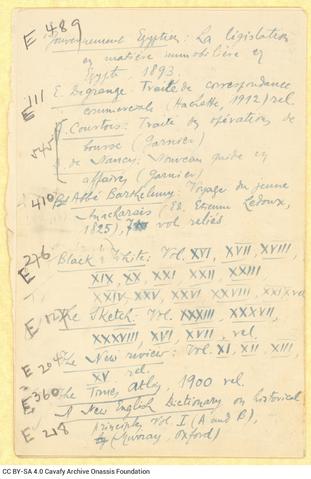 E 489
Gouvernement Egyptien: La législation
en matière immobilière en
Egypte, 1893.
E 111
E. Degrange: Traité de correspondance
commerciale (Hachette, 1912) rel.
545
Courtois: Traité des opérations de
bourse (Garnier)
de Nancy: Nouveau guide en
affaires (Garnier)
410
Abbé Barthélemy: Voyage du jeune
Anacharsis (Ed. Etienne Ledoux,
1825), vol reliés
E 276
Black & White: Vol. XVI, XVII, XVIII,
XIX, XX, XXI XXII XXIII
XXIV, XXV, XXVI, XXVII, XXVIII,
E
The Sketch: Vol. XXXIII, XXXVII,
XXXVIII, XVI, XVII, rel.
E 204
The New review: Vol. XI, XII, XIII,
XV rel.
E 360
The Times atlas, 1900 rel.
E 218
A New English Dictionary on historical
principles Vol. I (A and B),
(Murray, Oxford)
CC BY-SA 4.0 Cavafy Archive Onassis Foundation